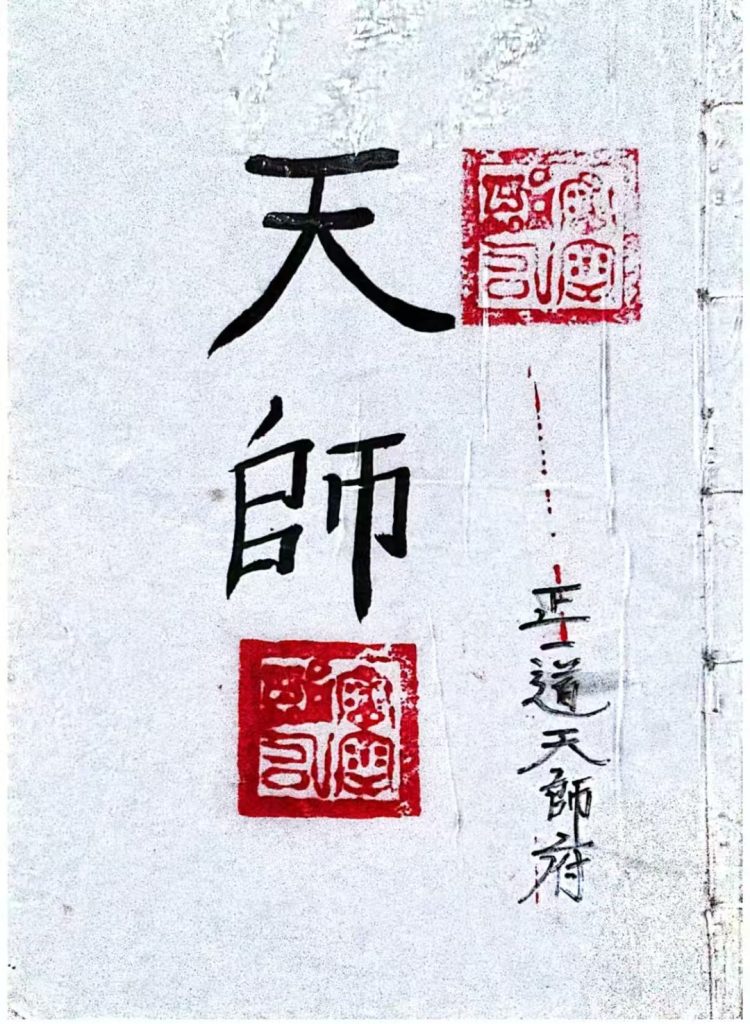 正一道天師府
天師